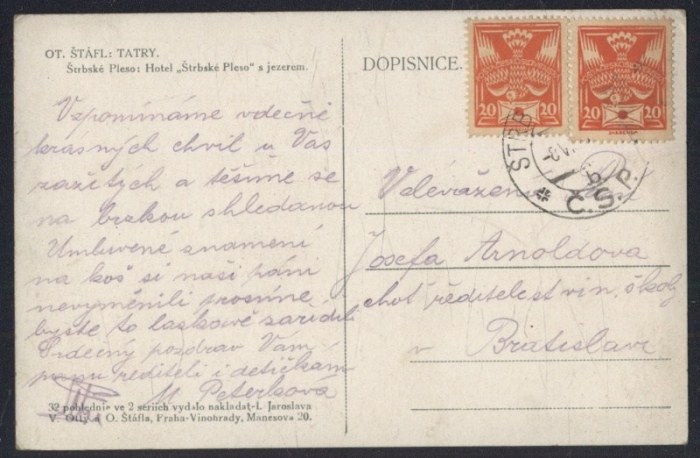 OT. ŠTÁFL: TATRY.
Štrbské Pleso: Hotel „Štrbské Pleso" s jezerem.
Vzpomínáme vděčně
krasných chvil u Vas
zažitých a těšíme se
na brzkou shledanou
Umluvené znamení
na koš si naši páni
nevyměnili prosíme
byste to laskavě zařídili
Srdečný pozdrav Vám
panu řediteli i detičkám
M Peterkova
32 pohlednic ve 2 seriích vydalo nakladat-l. Jaroslava
V. O. Štáfla, Praha-Vinohrady, Manesova 20.
DOPISNICE.
20 20
20 20
ŠTRB
Č.S.P.
Velevážená
Josefa Arnoldova
choť ředitele st vin. školy
v Bratislavě